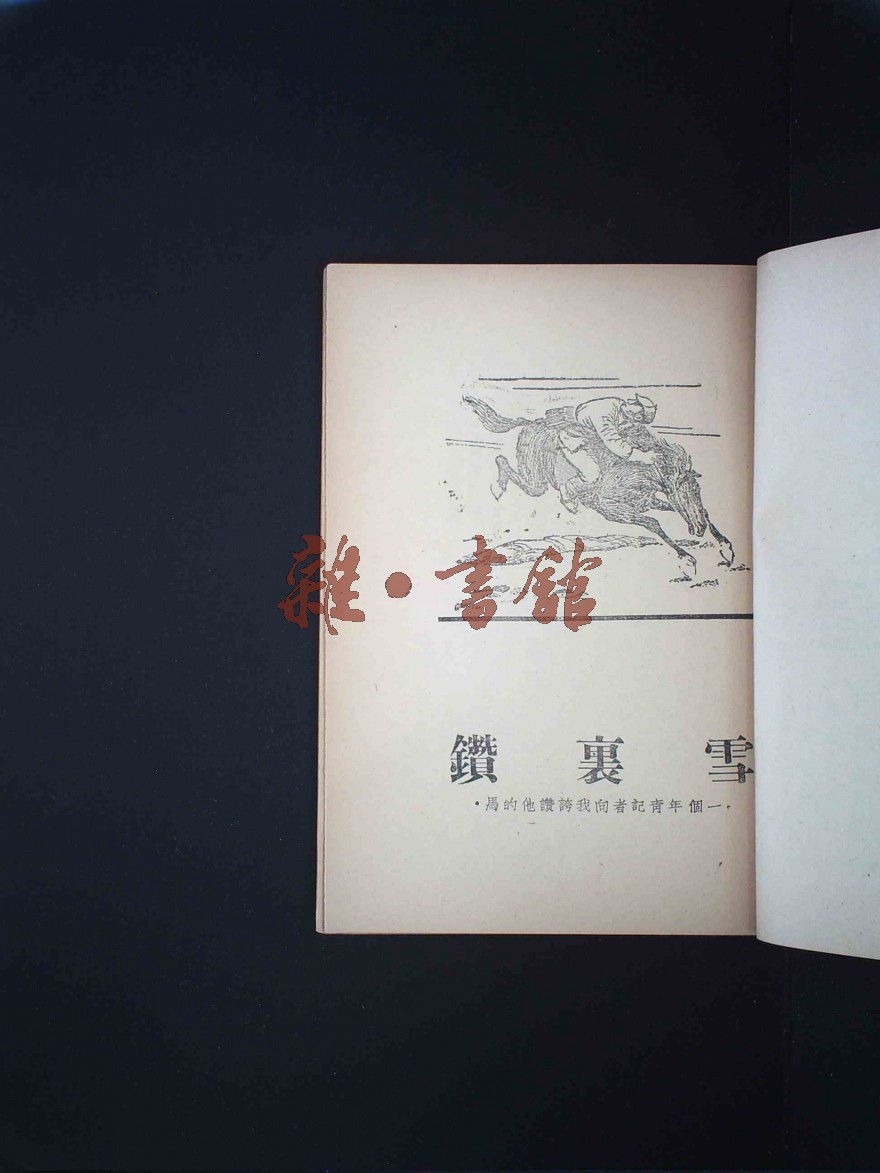 雜·書館
雪裏鑽
·一個年青記者向我誇讚他的馬·